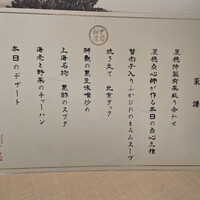 菜譜
特製前菜取り合わせ
点心師が作る本日の点心三種
蟹肉子入りふかひれのとろみスープ
焼き立て 北京ダック
鮮魚の黒豆味噌炒め
上海名物 黒酢のスブタ
海老と野菜のチャーハン
本日のデザート